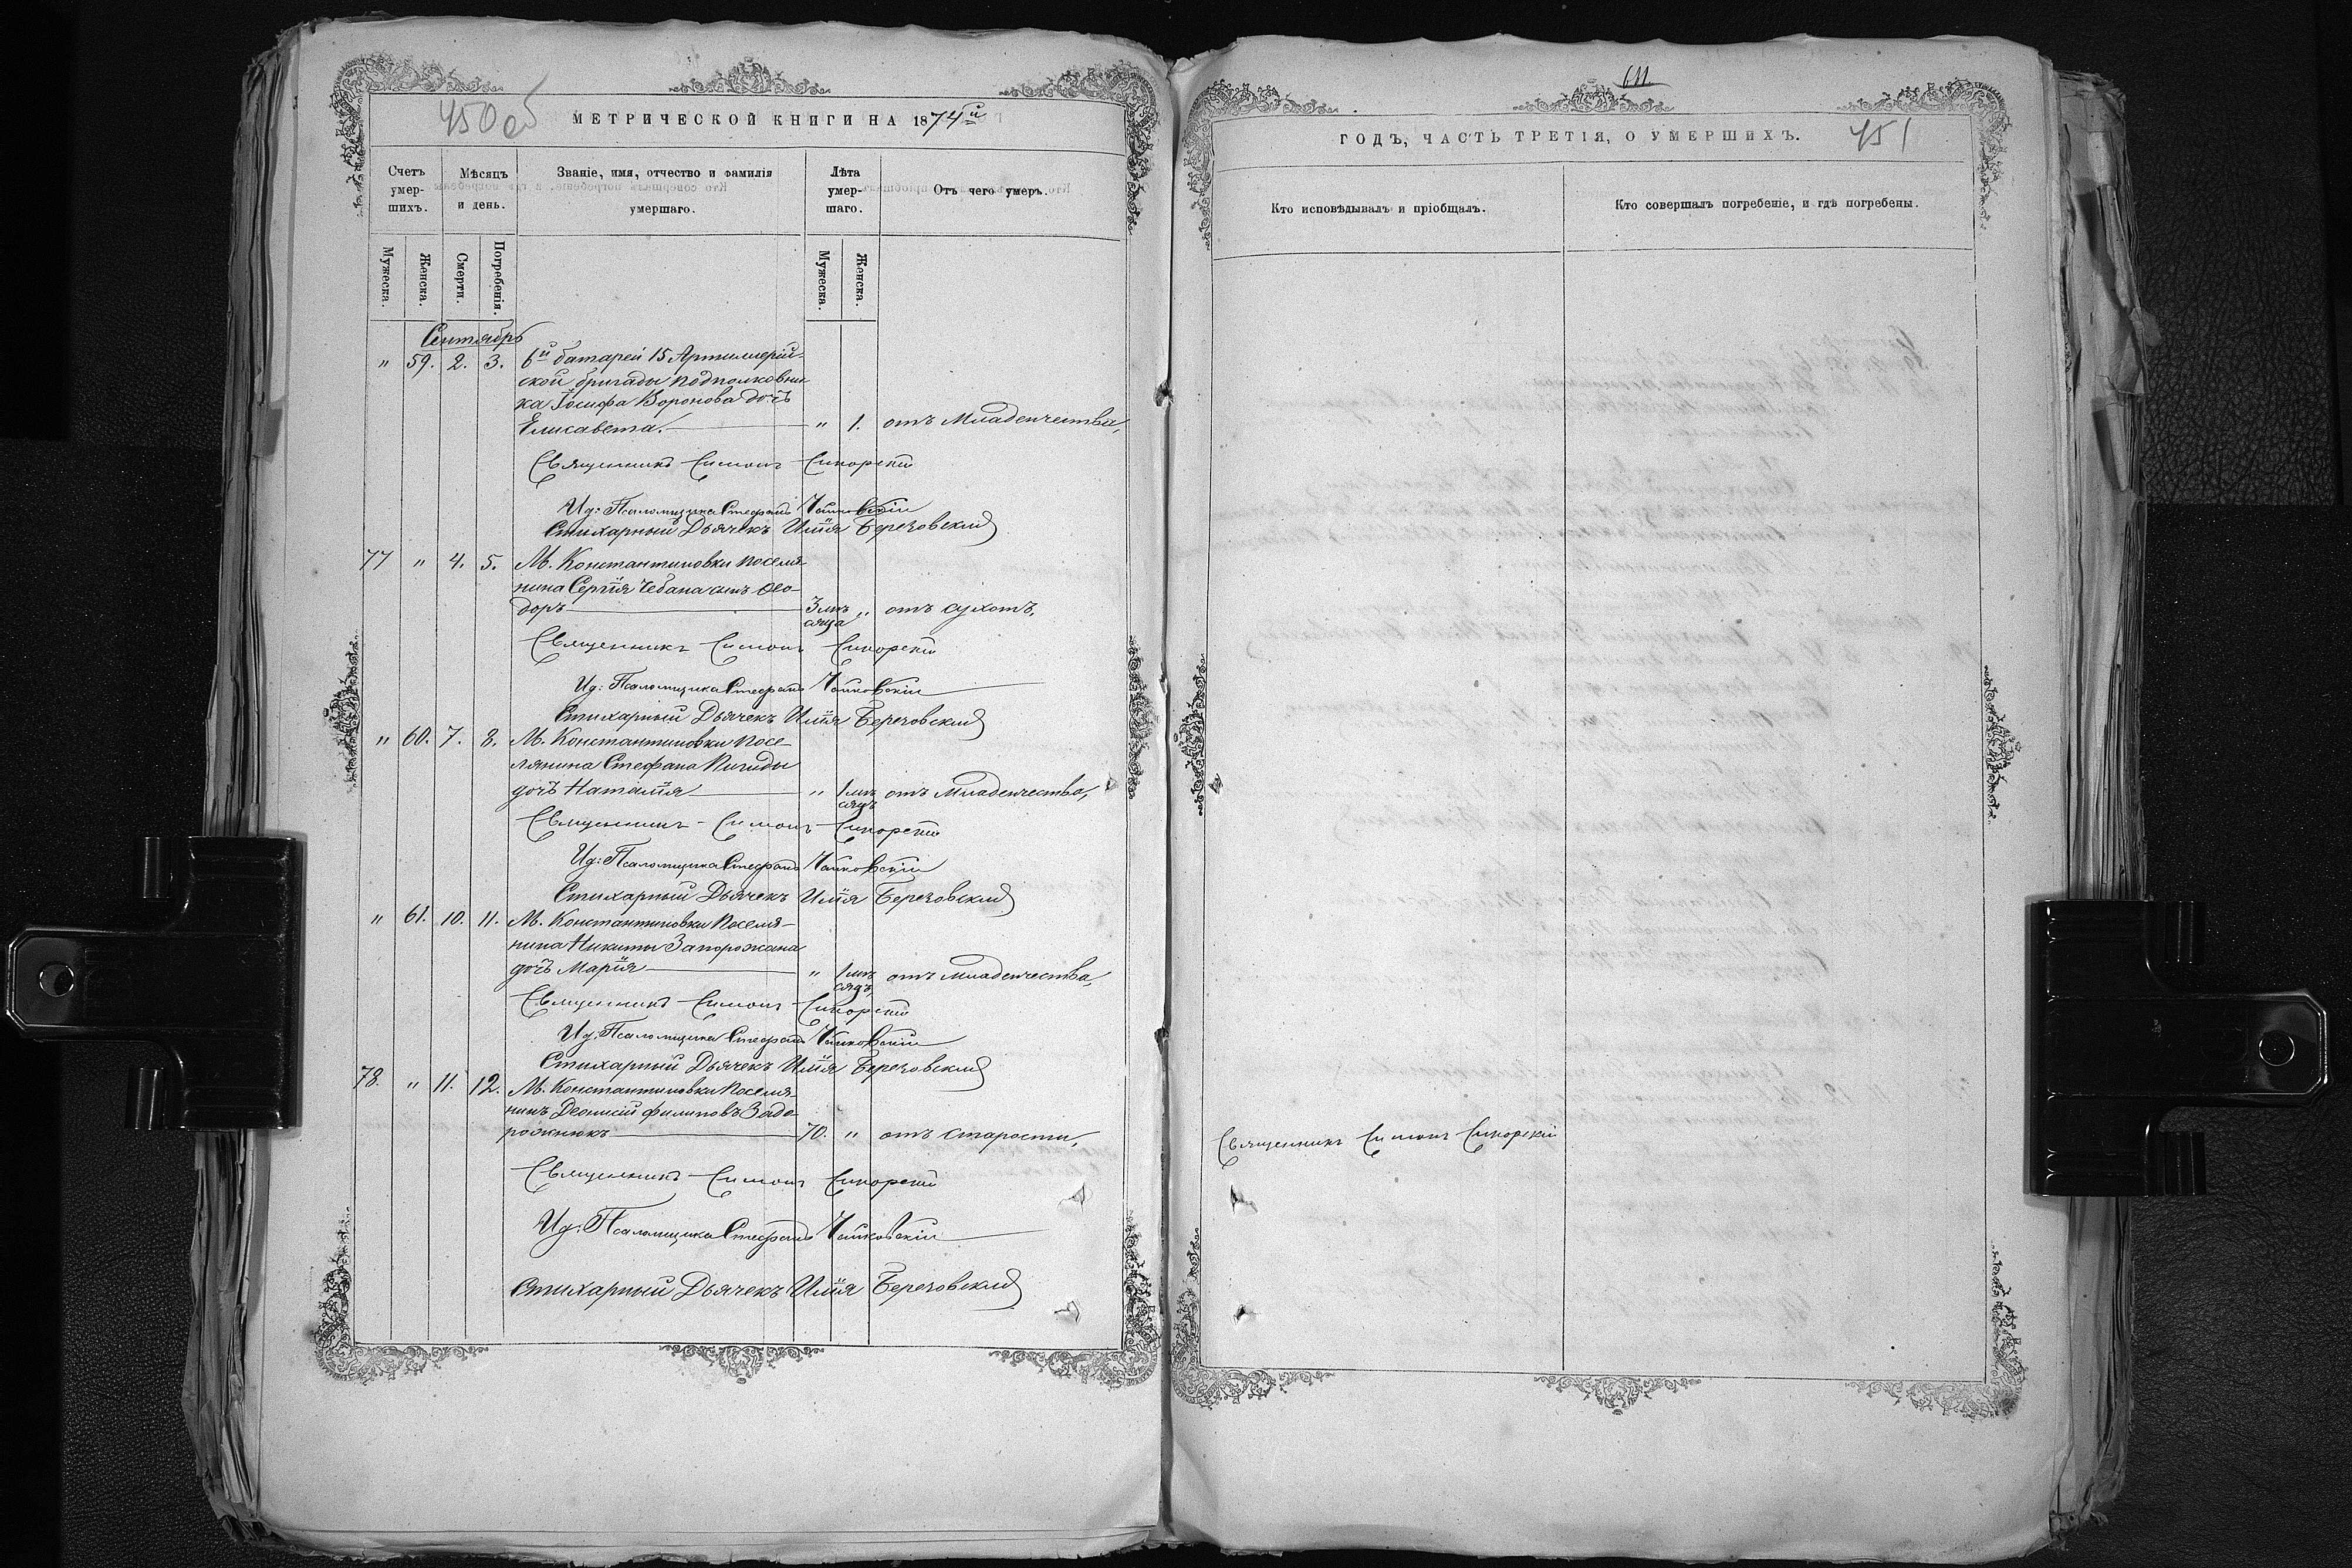 450 об
МЕТРИЧЕСКОЙ КНИГИ НА 1874й
Счетъ умер-шихъ.
Мѣсяцъ и день.
Званіе, имя, отчество и фамилія умершаго.
Лѣта умер-шаго.
Отъ чего умеръ.
Мужеска.
Женска.
Смерти.
Погребенія.
Мужеска.
Женска.
Сентябрь
" 59. 2. 3. 6й батареи 15 Артиллерій-
ской бригады подполковни
ка Іосифа Воронова дочь
Елисавета. " 1. отъ Младенчества,
Священникъ Симонъ Сикорскій
Ид: Псаломщика Стефанъ Чайковскій
Стихарный Дьячекъ Илія Березовскій
77 " 4. 5. М. Константиновки поселя
нина Сергія Чебана сынъ Ѳео-
доръ 3 мѣ " отъ сухотъ.
сяца
Священникъ Симонъ Сикорскій
Ид: Псаломщика Стефанъ Чайковскій
Стихарный Дьячекъ Илія Березовскій
" 60. 7. 8. М. Константиновки посе-
лянина Стефана
дочь Наталія " 1 мѣ отъ Младенчества,
сяцъ
Священникъ Симонъ Сикорскій
Ид: Псаломщика Стефанъ Чайковскій
Стихарный Дьячекъ Илія Березовскій
" 61. 10. 11. М. Константиновки поселя-
нина Никиты Запорожана
дочь Марія " 1 мѣ отъ Младенчества,
сяцъ
Священникъ Симонъ Сикорскій
Ид: Псаломщика Стефанъ Чайковскій
Стихарный Дьячекъ Илія Березовскій
78. " 11. 12. М. Константиновки поселя
нинъ Деонисій Филиповъ Задо
рожнюкъ 70. " отъ старости,
Священникъ Симонъ Сикорскій
Ид: Псаломщика Стефанъ Чайковскій
Стихарный Дьячекъ Илія Березовскій
451
ГОДЪ, ЧАСТЬ ТРЕТІЯ, О УМЕРШИХЪ.
Кто исповѣдывалъ и пріобщалъ.
Кто совершалъ погребеніе, и гдѣ погребены.
Священникъ Симонъ Сикорскій